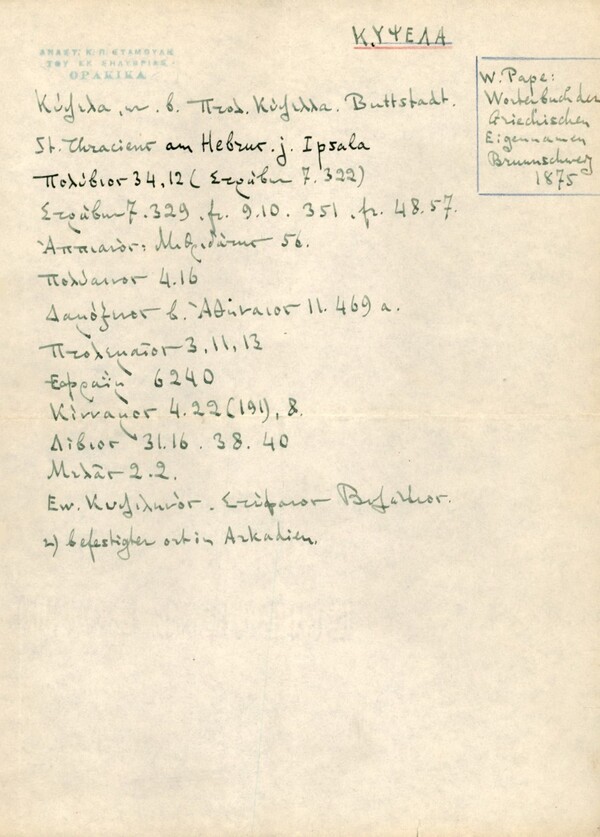 ΚΥΨΕΛΑ
ΑΝΑΣΤ. Κ. Π. ΣΤΑΜΟΥΛΗ
ΤΟΥ ΕΚ ΣΗΛΥΒΡΙΑΣ
ΘΡΑΚΙΚΑ
W. Pape:
Wörterbuch der
Griechischen
Eigennamen
Braunschweig
1875
Κύψελα, Πτολ. Κύψελλα. Buttstadt.
St. Thraciens am Hebrus. j. Ipsala
Πολύβιος 34,12 (Στράβων 7.322)
Στράβων 7.329. fr. 9.10. 351. fr. 48.57.
Ἀππιανός: Μιθριδάτης 56.
Πολύαινος 4.16
β. Ἀθήναιος 11. 469 a.
Πτολεμαῖος 3, 11, 13
Εφραίμ 6240
Κίνναμος 4.22 (191), 8.
Λίβιος 31.16. 38. 40
Μελᾶς 2.2.
Εw. Κυψεληνός. Στέφανος Βυζάντιος.
2) befestigter ort in Arkadien.